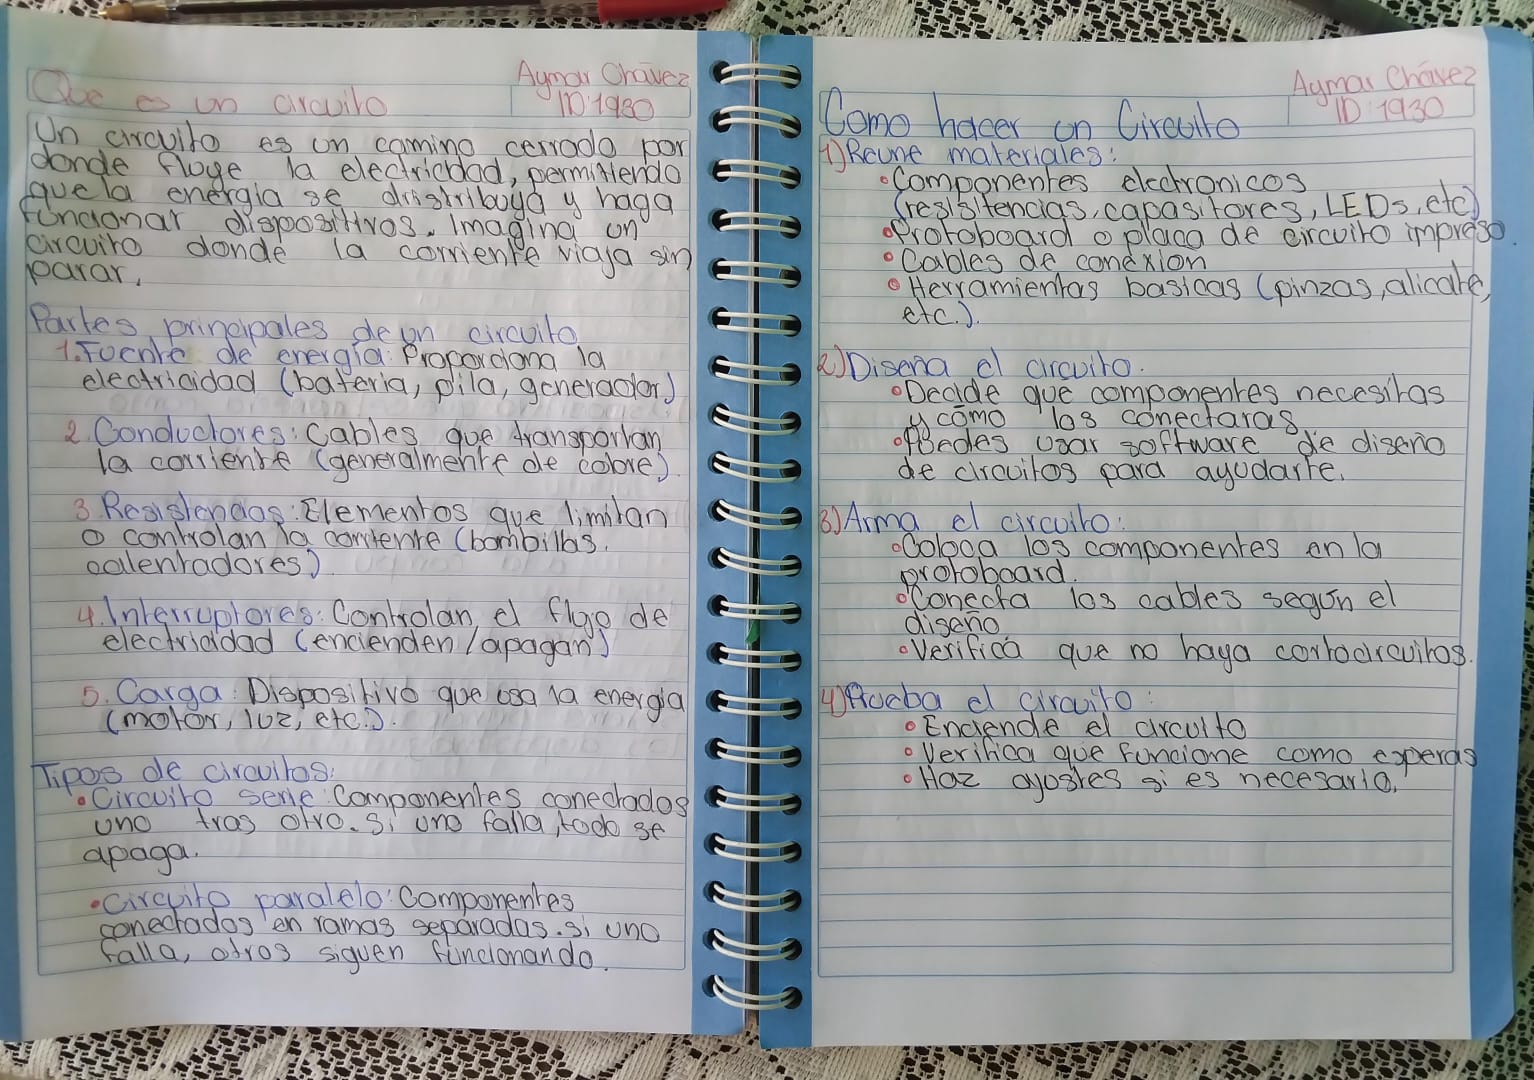 Aymar Chávez
Que es un circuito
ID:1930
Un circuito es un camino cerrado por
donde fluye la electricidad, permitiendo
que la energía se distribuya y haga
funcionar dispositivos. Imagina un
circuito donde la corriente viaja sin
parar.
Partes principales de un circuito
1. Fuente de energía: Proporciona la
electricidad (bateria, pila, generador)
2. Conductores: Cables que transportan
la corriente (generalmente de cobre).
3. Resistencias: Elementos que limitan
o controlan la corriente (bombillas,
calentadores)
4. Interruptores: Controlan el flujo de
electricidad (encienden/apagan)
5. Carga: Dispositivo que usa la energía
(motor, luz, etc.).
Tipos de circuitos:
• Circuito serie: Componentes conectados
uno tras otro. Si uno falla, todo se
apaga.
• Circuito paralelo: Componentes
conectados en ramas separadas. Si uno
falla, otros siguen funcionando.
Aymar Chávez
ID:1930
Como hacer un Circuito
1) Reune materiales:
• Componentes electronicos
(resisitencias, capasitores, LEDs, etc)
• Protoboard o placa de circuito impreso.
• Cables de conexion
• Herramientas basicas (pinzas, alicate,
etc.).
2) Diseña el circuito.
• Decide que componentes necesitas
y cómo los conectaras
• Puedes usar software de diseño
de circuitos para ayudarte.
3) Arma el circuito:
• Coloca los componentes en la
protoboard.
• Conecta los cables según el
diseño
• Verifica que no haya cortocircuitos.
4) Prueba el circuito:
• Enciende el circuito
• Verifica que funcione como esperas
• Haz ajustes si es necesario.